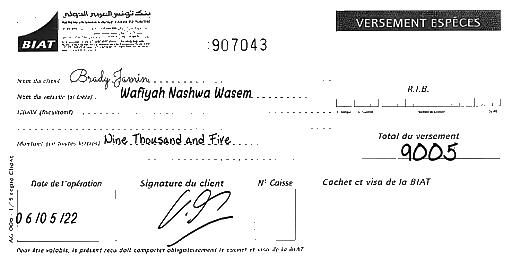 بنك تونس العربي الدولي
BIAT
907043
VERSEMENT ESPÈCES
Nom du client Brady Jamin
Nom du remettant (si tiers) Wafiyah Nashwa Wasem
R.I.B.
Libellé (facultatif)
Montant (en toutes lettres) Nine Thousand and Five
Total du versement
9005
Date de l'opération
Signature du client
N° Caisse
Cachet et visa de la BIAT
06/05/22
copie Client
Pour être valable, le présent reçu doit comporter obligatoirement le cachet et visa de la BIAT